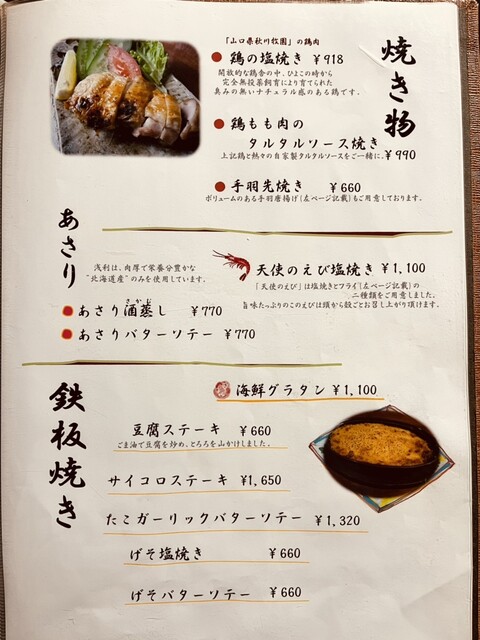 焼き物
「山口県秋川牧園」の鶏肉
鶏の塩焼き ¥918
開放的な鶏舎の中、ひよこの時から
完全無投薬飼育により育てられた
臭みの無いナチュラル感のある鶏です。
鶏もも肉の
タルタルソース焼き
上記鶏と熱々の自家製タルタルソースをご一緒に。¥990
手羽先焼き ¥660
ボリュームのある手羽唐揚げ(左ページ記載)もご用意しております。
あさり
浅利は、肉厚で栄養分豊かな
"北海道産"のみを使用しています。
あさり酒蒸し ¥770
さかむ
あさりバターソテー ¥770
天使のえび塩焼き ¥1,100
「天使のえび」は塩焼きとフライ(左ページ記載)の
二種類をご用意しました。
旨味たっぷりのこのえびは頭から殻ごとお召し上がり頂けます。
鉄板焼き
海鮮グラタン ¥1,100
豆腐ステーキ ¥660
ごま油で豆腐を炒め、とろろを山かけしました。
サイコロステーキ ¥1,650
たこガーリックバターソテー ¥1,320
げそ塩焼き ¥660
げそバターソテー ¥660